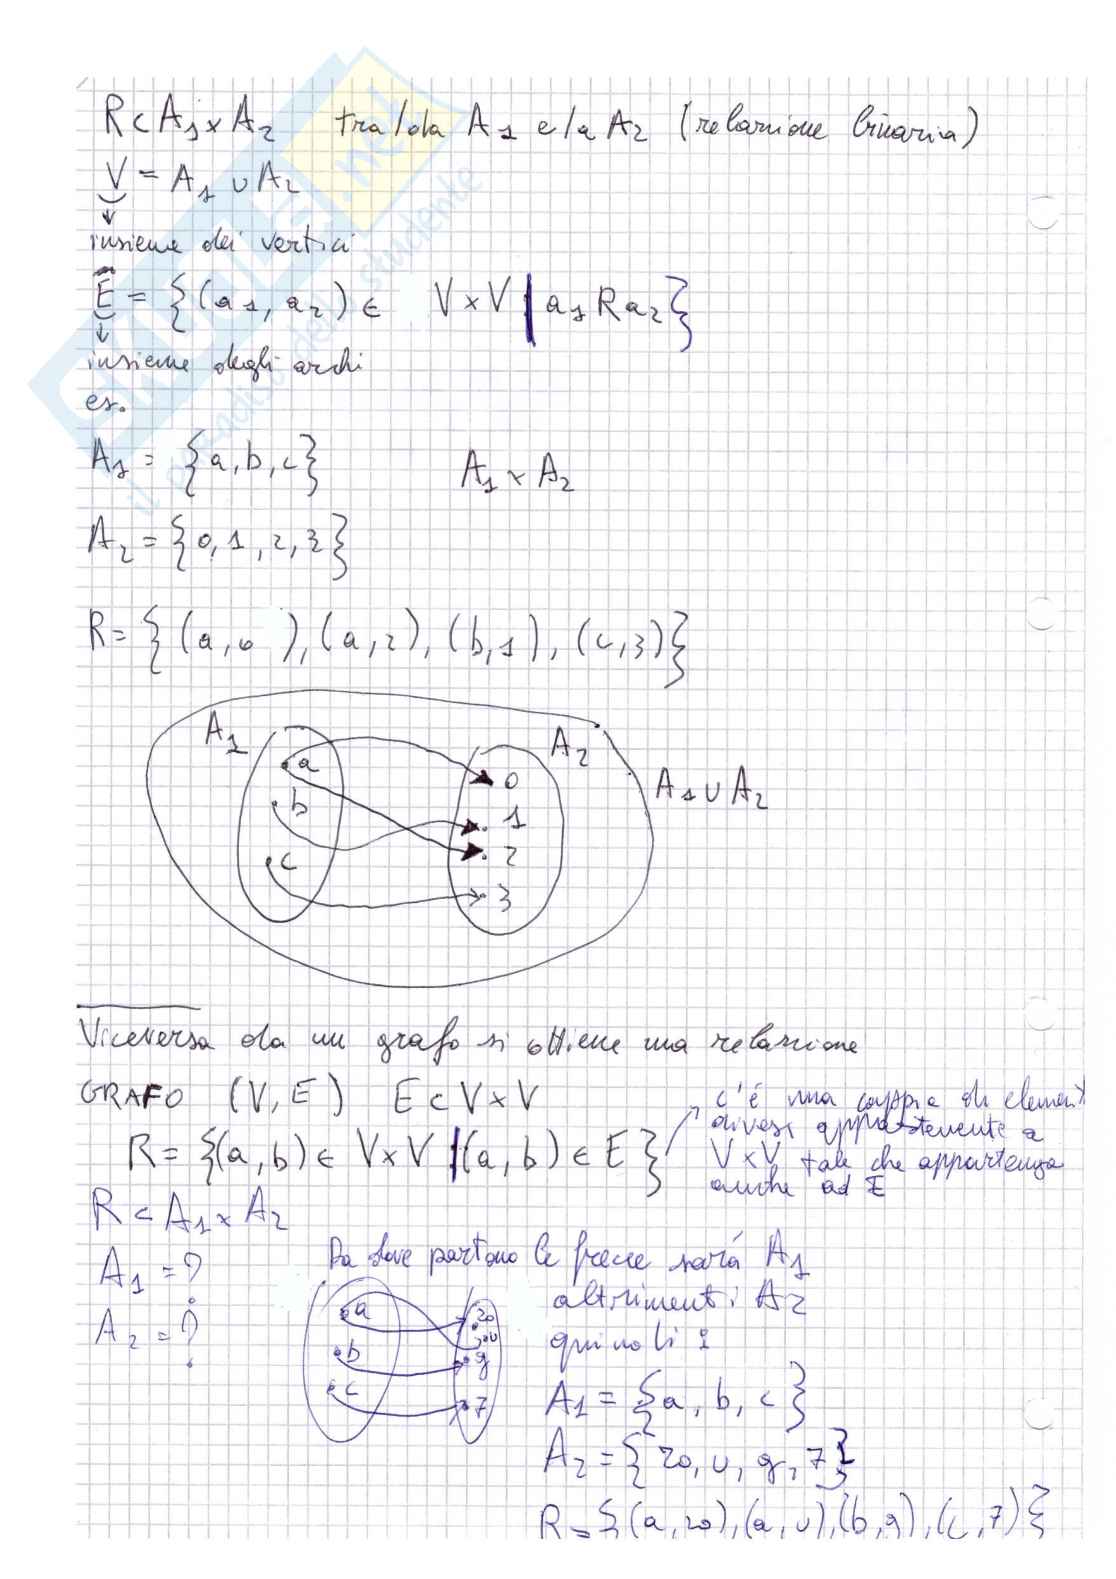 R ⊂ A₁ × A₂ tra/da A₁ e/a A₂ (relazione binaria)
V = A₁ ∪ A₂
↓
insieme dei vertici
E = {(a₁, a₂) ∈ V × V | a₁ R a₂}
↓
insieme degli archi
es.
A₁ = {a, b, c} A₁ × A₂
A₂ = {0, 1, 2, 3}
R = {(a, 0), (a, 2), (b, 1), (c, 3)}
A₁ A₂
a 0
A₁ ∪ A₂
b 1
c 2
3
Viceversa da un grafo si ottiene una relazione
GRAFO (V, E) E ⊂ V × V
R = {(a, b) ∈ V × V | (a, b) ∈ E}
c'è una coppia di element
diversi appartenente a
V × V tale che appartenga
anche ad E
R ⊂ A₁ × A₂
A₁ = ?
A₂ = ?
Da dove partono le frecce sarà A₁
altrimenti A₂
quindi :
a 20
u
b g
c 7
A₁ = {a, b, c}
A₂ = {20, u, g, 7}
R = {(a, 20), (a, u), (b, g), (c, 7)}
SKUOLA.net
il paradiso dello studente